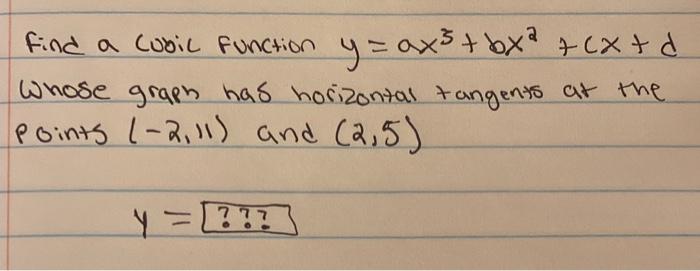 Find a cubic function y = ax³ + bx² + cx + d
whose graph has horizontal tangents at the
points (-2,11) and (2,5)
y = [???]